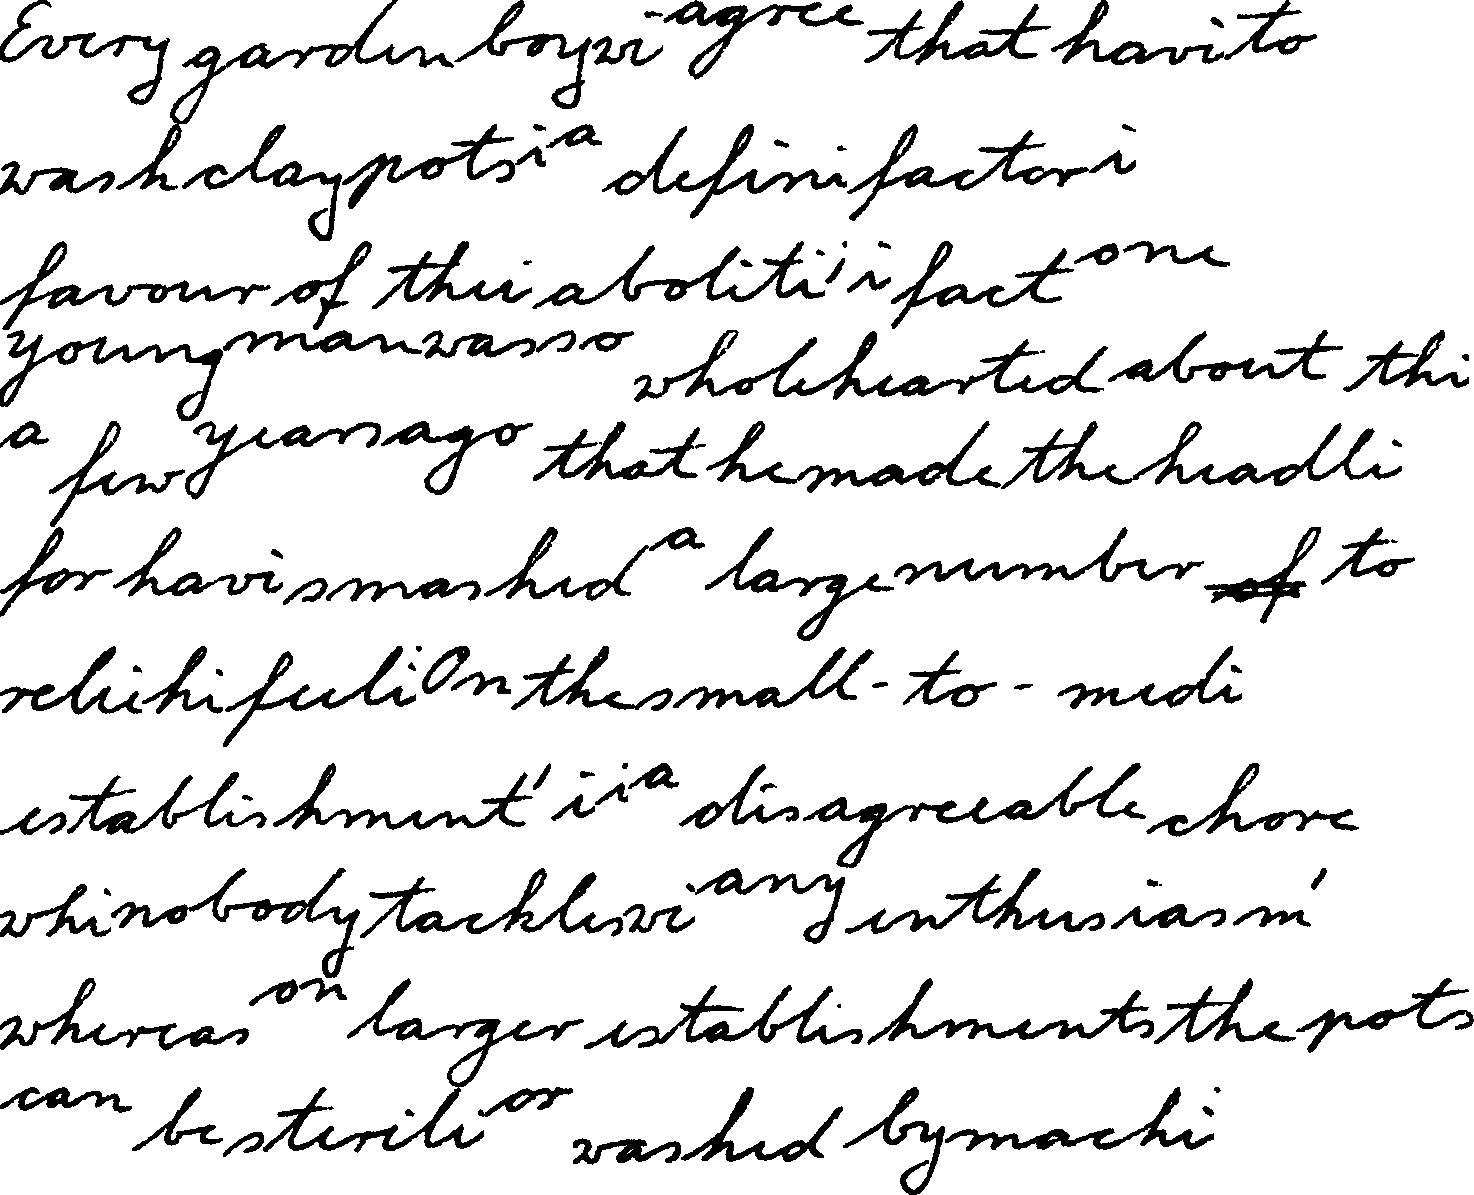 Every garden boy wi agree that havi to
wash clay pots i a defini factor i
favour of thei aboliti' i fact one
young man was so wholehearted about thi
a few years ago that he made the headli
for havi smashed a large number of to
reliei hi feeli On the small-to-medi
establishment' i i a disagreeable chore
whi nobody tackles wi any enthusiasm'
whereas on larger establishments the pots
can be sterili or washed by machi